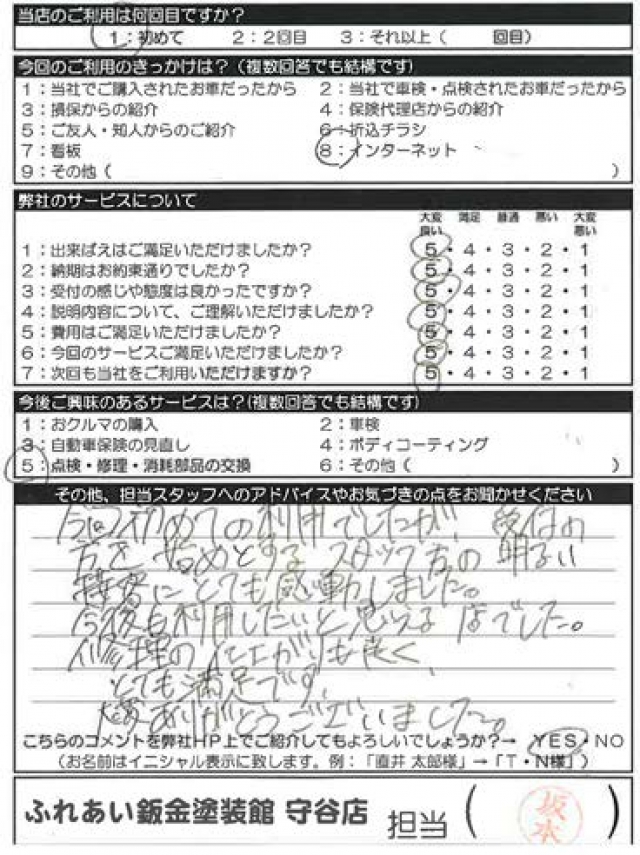 当店のご利用は何回目ですか？
1：初めて 2：2回目 3：それ以上（ 回目）
今回のご利用のきっかけは？（複数回答でも結構です）
1：当社でご購入されたお車だったから 2：当社で車検・点検されたお車だったから
3：損保からの紹介 4：保険代理店からの紹介
5：ご友人・知人からのご紹介 6：折込チラシ
7：看板 8：インターネット
9：その他（ ）
弊社のサービスについて
大変良い 満足 普通 悪い 大変悪い
1：出来ばえはご満足いただけましたか？ 5・4・3・2・1
2：納期はお約束通りでしたか？ 5・4・3・2・1
3：受付の感じや態度は良かったですか？ 5・4・3・2・1
4：説明内容について、ご理解いただけましたか？ 5・4・3・2・1
5：費用はご満足いただけましたか？ 5・4・3・2・1
6：今回のサービスご満足いただけましたか？ 5・4・3・2・1
7：次回も当社をご利用いただけますか？ 5・4・3・2・1
今後ご興味のあるサービスは？（複数回答でも結構です）
1：おクルマの購入 2：車検
3：自動車保険の見直し 4：ボディコーティング
5：点検・修理・消耗部品の交換 6：その他（ ）
その他、担当スタッフへのアドバイスやお気づきの点をお聞かせください
今回初めての利用でしたが、受付の
方を始めとするスタッフ方の明るい
接客にとても感動しました。
今後も利用したいと思えるほどでした。
修理の仕上がりも良く、
とても満足です。
大変ありがとうございました。
こちらのコメントを弊社HP上でご紹介してもよろしいでしょうか？→ YES・NO
（お名前はイニシャル表示に致します。例：「直井 太郎様」→「T・N様」）
ふれあい鈑金塗装館 守谷店 担当（ 坂本 ）